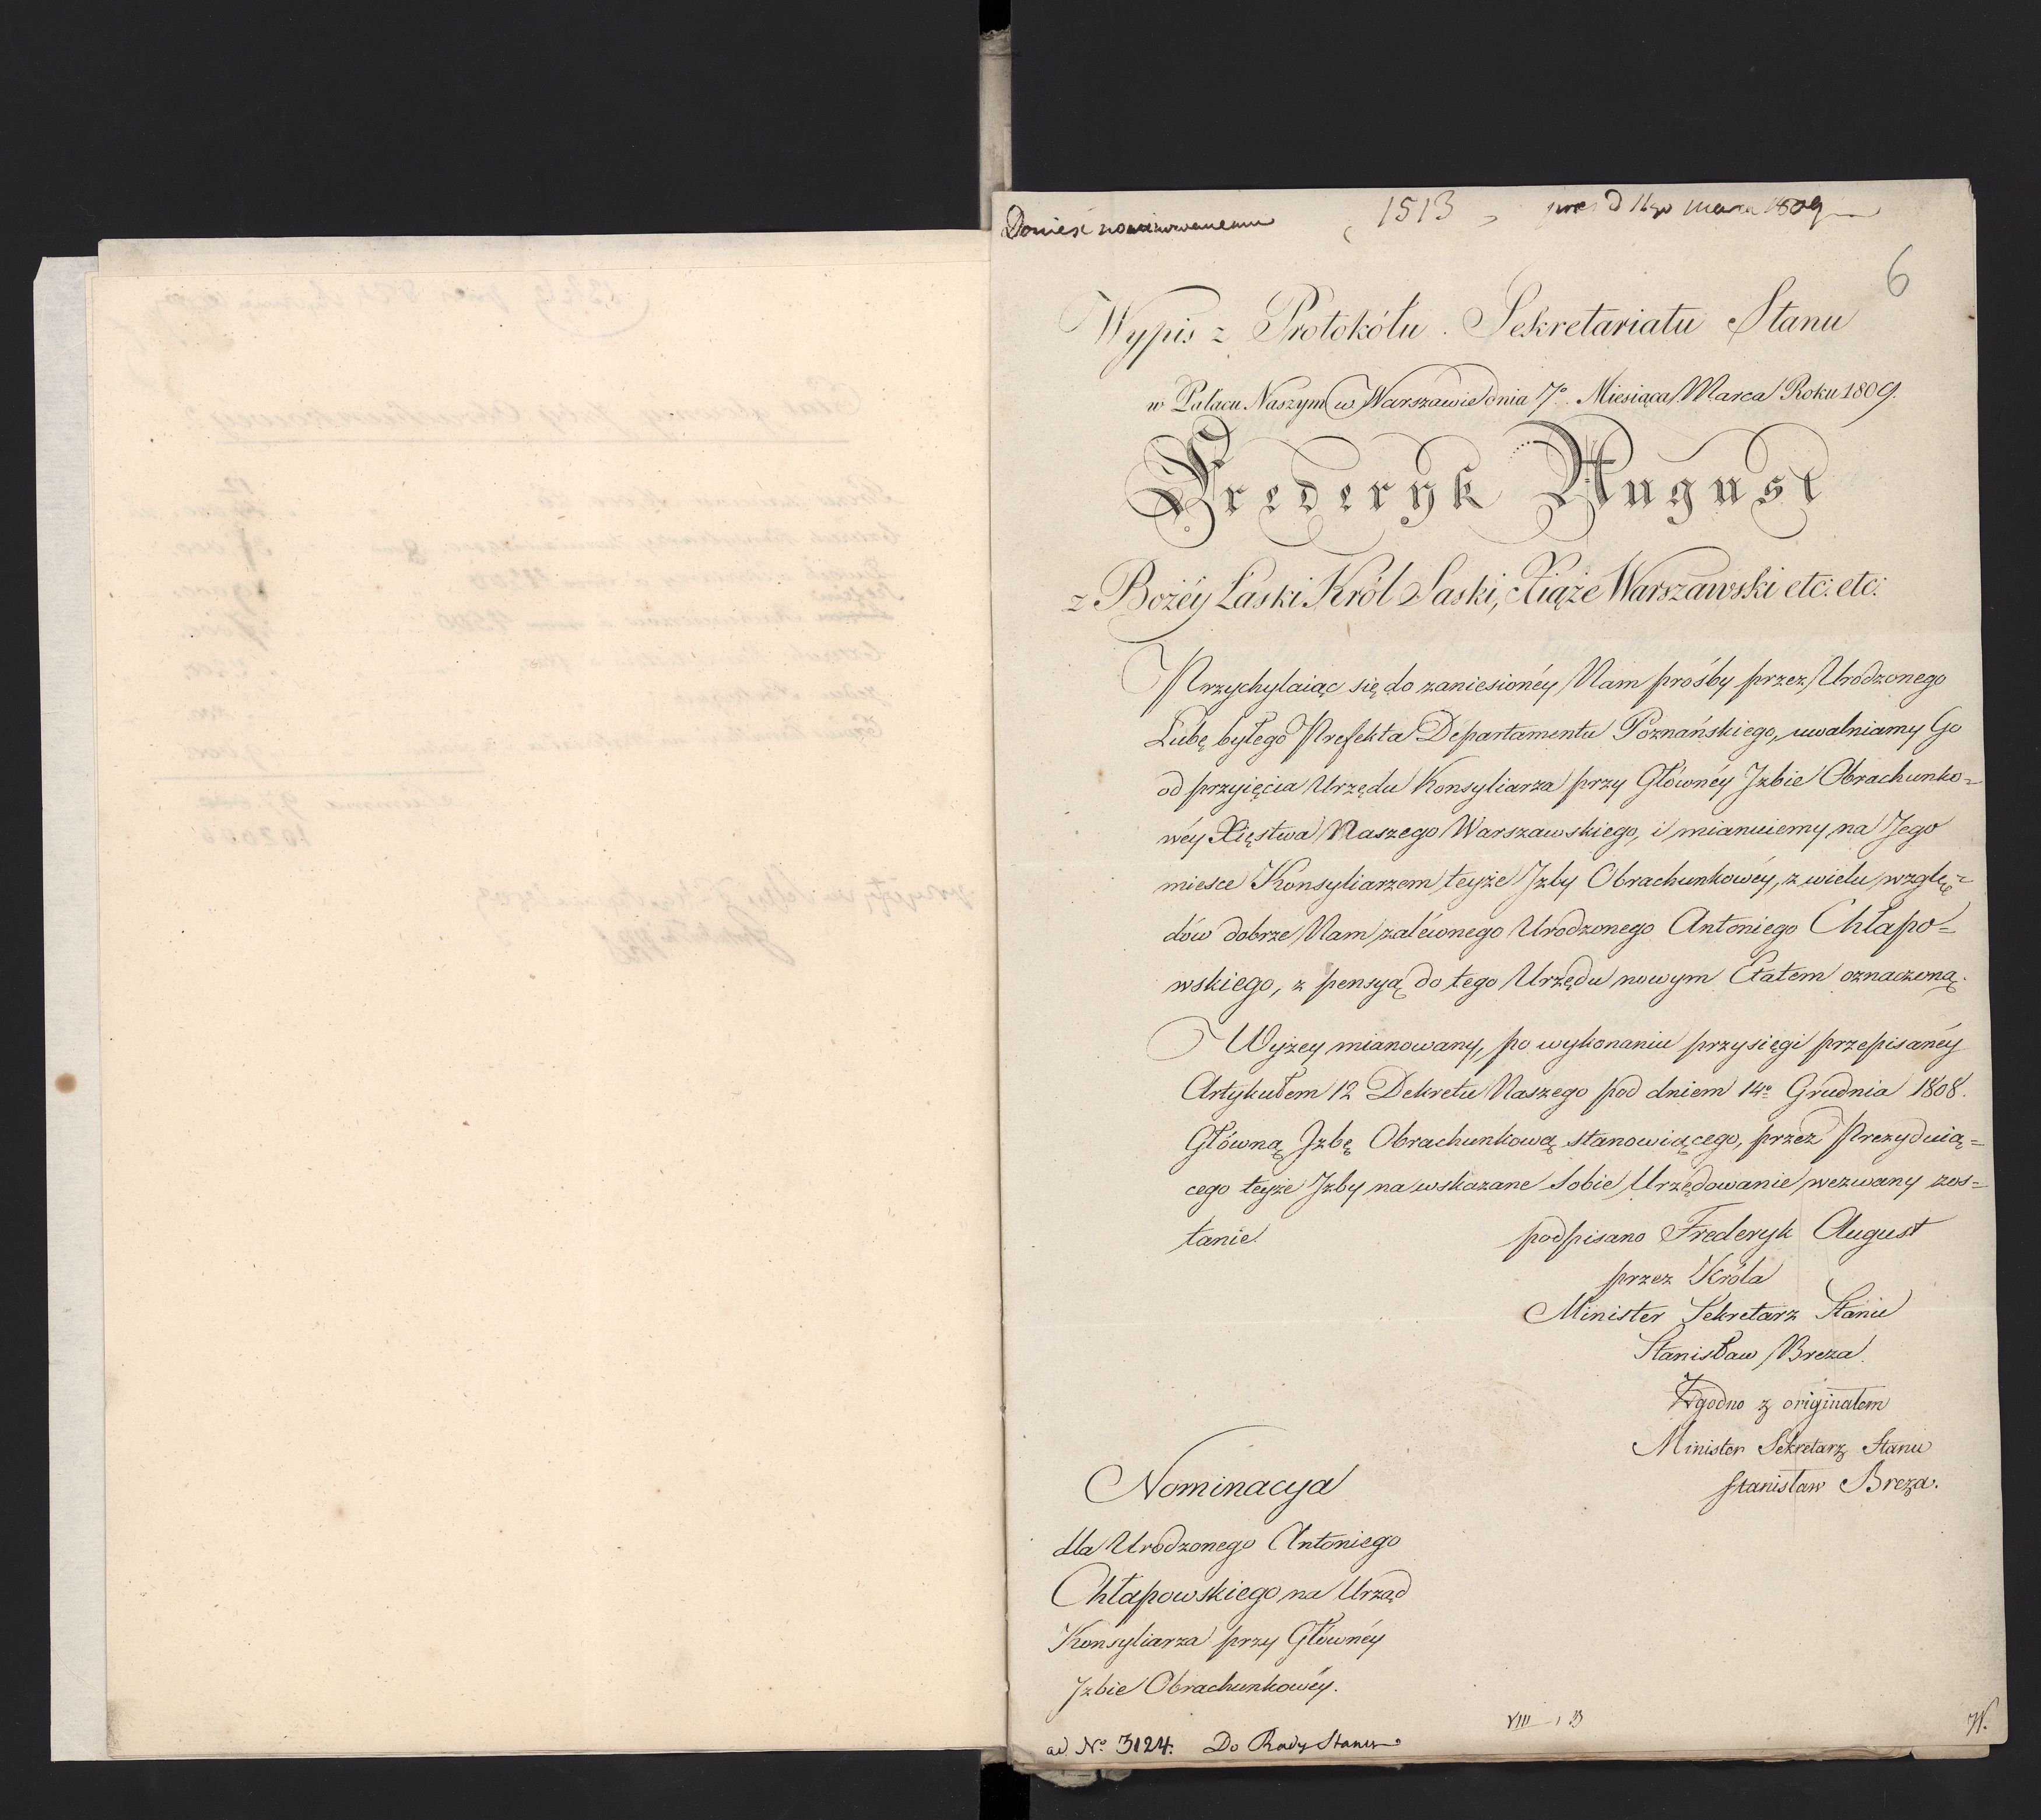 Donieść nominowanemu
1513
pres d 11go Marca 1809
6
Wypis z Protokółu Sekretariatu Stanu
w Pałacu Naszym w Warszawie dnia 7o. Miesiąca Marca Roku 1809.
Frederyk August
z Bożéy Łaski Król Saski, Xiąże Warszawski etc: etc:
Przychylaiąc się do zaniesionéy Nam prośby przez Urodzonego
Lubę byłego Prefekta Departamentu Poznańskiego, uwalniamy Go
od przyięcia Urzędu Konsyliarza przy Głównéy Jzbie Obrachunko=
wéy Xięstwa Naszego Warszawskiego, i mianuiemy na Jego
miesce Konsyliarzem teyże Jzby Obrachunkowéy, z wielu wzglę=
dów dobrze Nam zaléconego Urodzonego Antoniego Chłapo=
wskiego, z pensyą do tego Urzędu nowym Etatem oznaczoną.
Wyżey mianowany, po wykonaniu przysięgi przepisanéy
Artykułem 12 Dekretu Naszego pod dniem 14o Grudnia 1808.
Główną Jzbę Obrachunkową stanowiącego, przez Prezyduią=
cego teyże Jzby na wskazane Sobie Urzędowanie wezwany zos=
tanie.
podpisano Frederyk August
przez Króla
Minister Sekretarz Stanu
Stanisław Breza.
Zgodno z originałem
Minister Sekretarz Stanu
Stanisław Breza.
Nominacya
dla Urodzonego Antoniego
Chłapowskiego na Urząd
Konsyliarza przy Głównéy
Jzbie Obrachunkowéy.
ad No 3124. Do Rady Stanu
VIII
W.